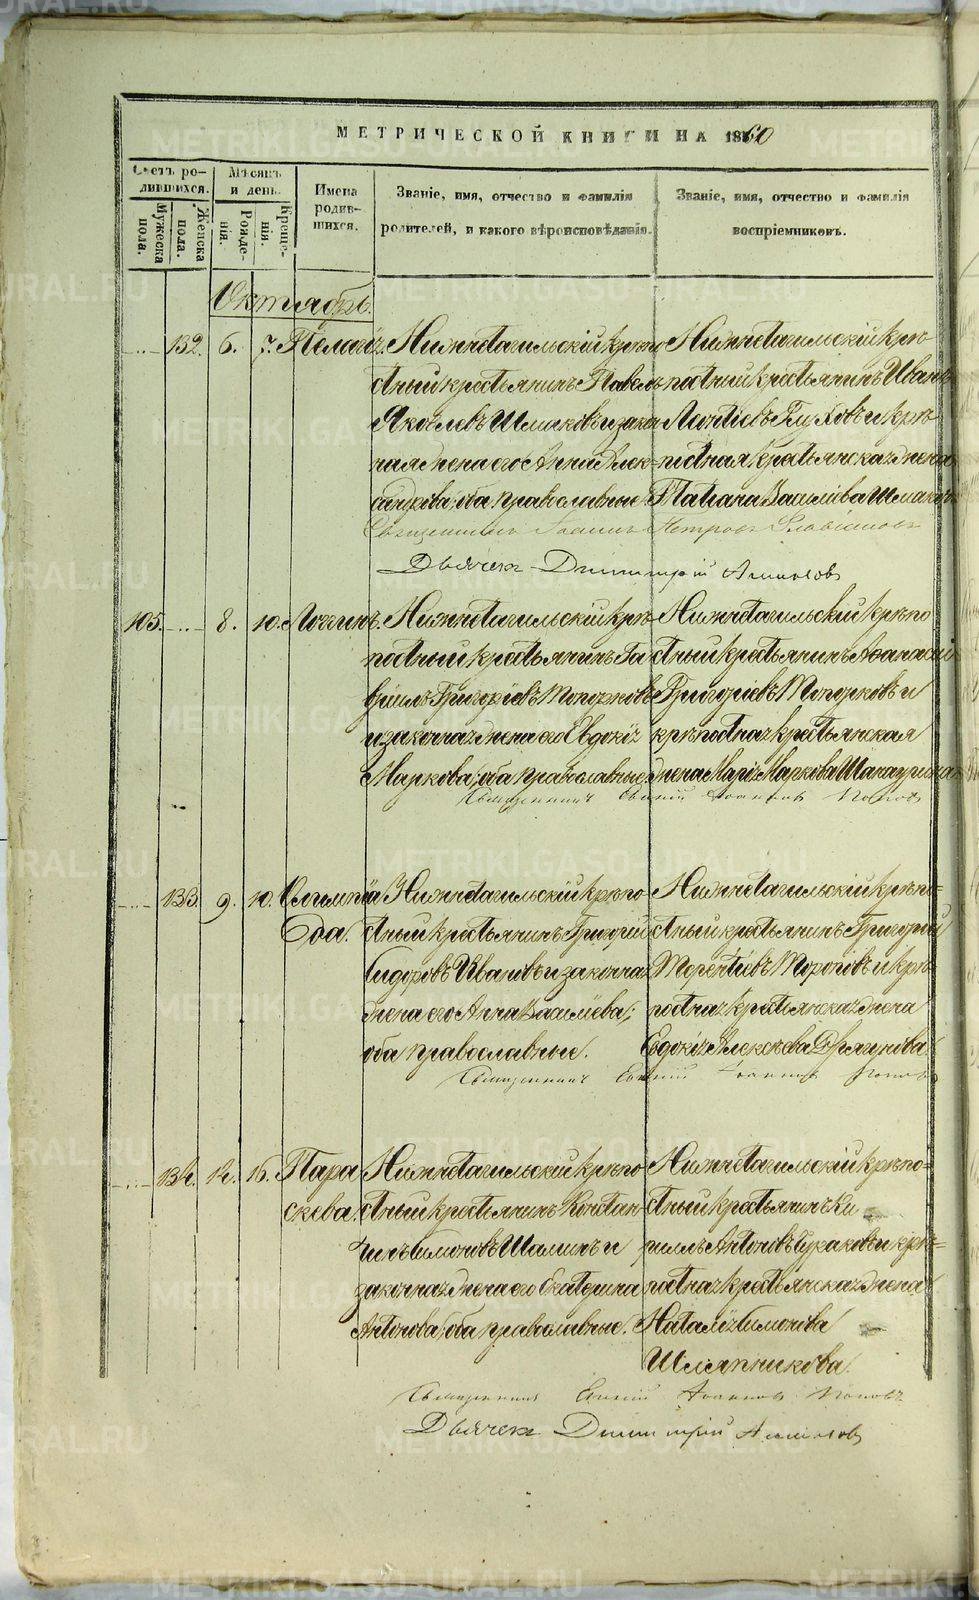 МЕТРИЧЕСКОЙ КНИГИ НА 1860
Счетъ ро-
дившихся.
Мужеска пола.
Женска пола.
Мѣсяцъ
и день.
Рожде-
нія.
Креще-
нія.
Имена
родив-
шихся.
Званіе, имя, отчество и фамилія
родителей, и какого вѣроисповѣданія.
Званіе, имя, отчество и фамилія
воспріемниковъ.
Октябрь.
132. 6. 7. Пелагія.
Нижнетагильскій крѣпо
стный крестьянинъ Павелъ
Яковлевъ Шмаковъ и закон
ная жена его Анна Алек-
сандрова, оба православные.
Нижнетагильскій крѣ-
постный крестьянинъ Иванъ
Леонтіевъ и крѣ-
постная крестьянская жена
Татіана Василіева Шмакова
Священникъ Іоаннъ Петровъ
Дьячекъ Димитрій
105. 8. 10. Логгинъ.
Нижнетагильскій крѣ-
постный крестьянинъ Га
вріилъ Григоріевъ Топорковъ
и законная жена его Евдокія
Маркова, оба православные
Нижнетагильскій крѣпо
стный крестьянинъ Аѳанасій
Григоріевъ Топорковъ и
крѣпостная крестьянская
жена Марія Маркова
Священникъ Евгеній Іоанновъ Поповъ
133. 9. 10. Олимпіа
да.
Нижнетагильскій крѣпо-
стный крестьянинъ Григорій
Сидоровъ Ивановъ и законная
жена его Анна Василіева;
оба православные.
Нижнетагильскій крѣпо-
стный крестьянинъ Григорій
Терентіевъ Тороповъ и крѣ-
постная крестьянская жена
Евдокія Алексѣева Дрягунова
Священникъ Евгеній Іоанновъ Поповъ
134. 14. 16. Пара
скева.
Нижнетагильскій крѣпо
стный крестьянинъ Констан-
тинъ Симоновъ Шалинъ и
законная жена его Екатерина
Антонова, оба православные.
Нижнетагильскій крѣпо-
стный крестьянинъ Ки
риллъ Антоновъ Бураковъ и крѣ-
постная крестьянская жена
Наталія Симонова
Шляпникова.
Священникъ Евгеній Іоанновъ Поповъ
Дьячекъ Димитрій
METRIKI.GASO-URAL.RU